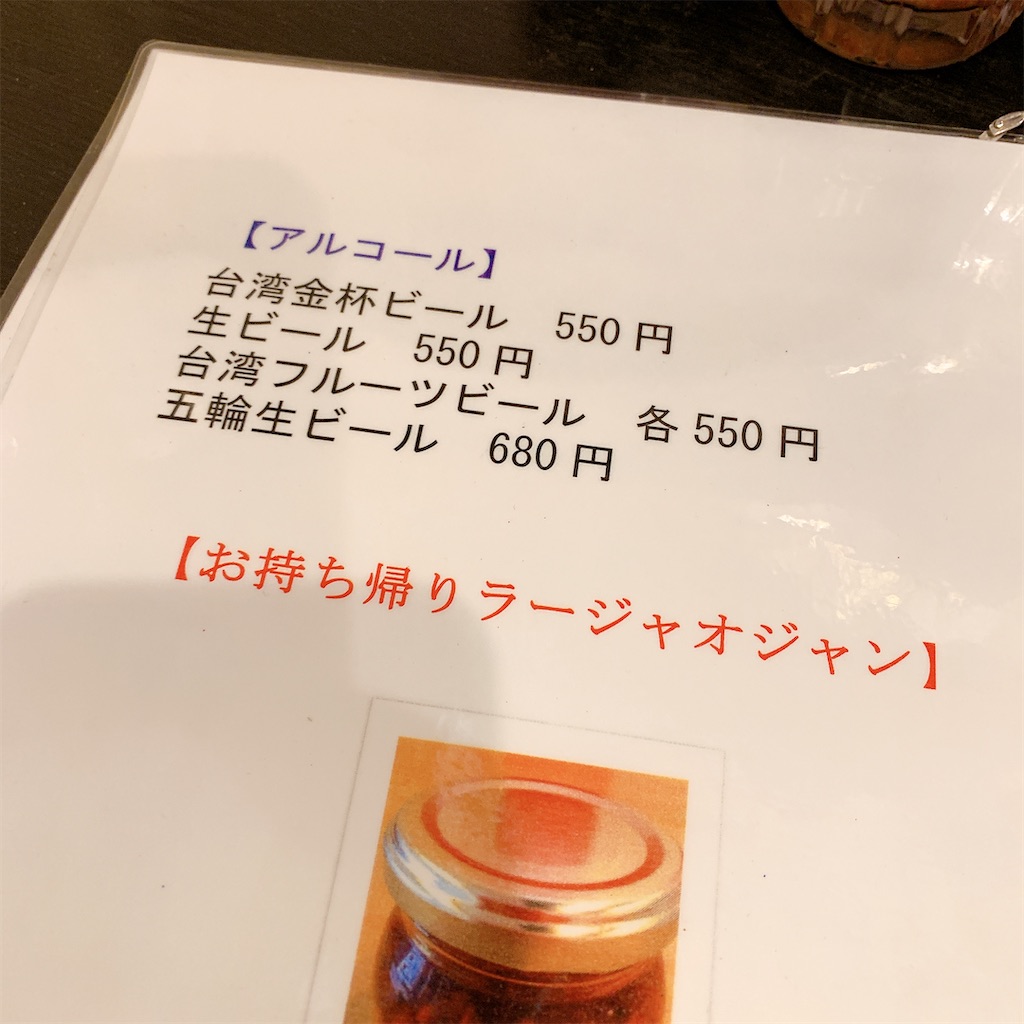 【アルコール】
台湾金杯ビール　550 円
生ビール　550 円
台湾フルーツビール　各 550 円
五輪生ビール　680 円
【お持ち帰りラージャオジャン】